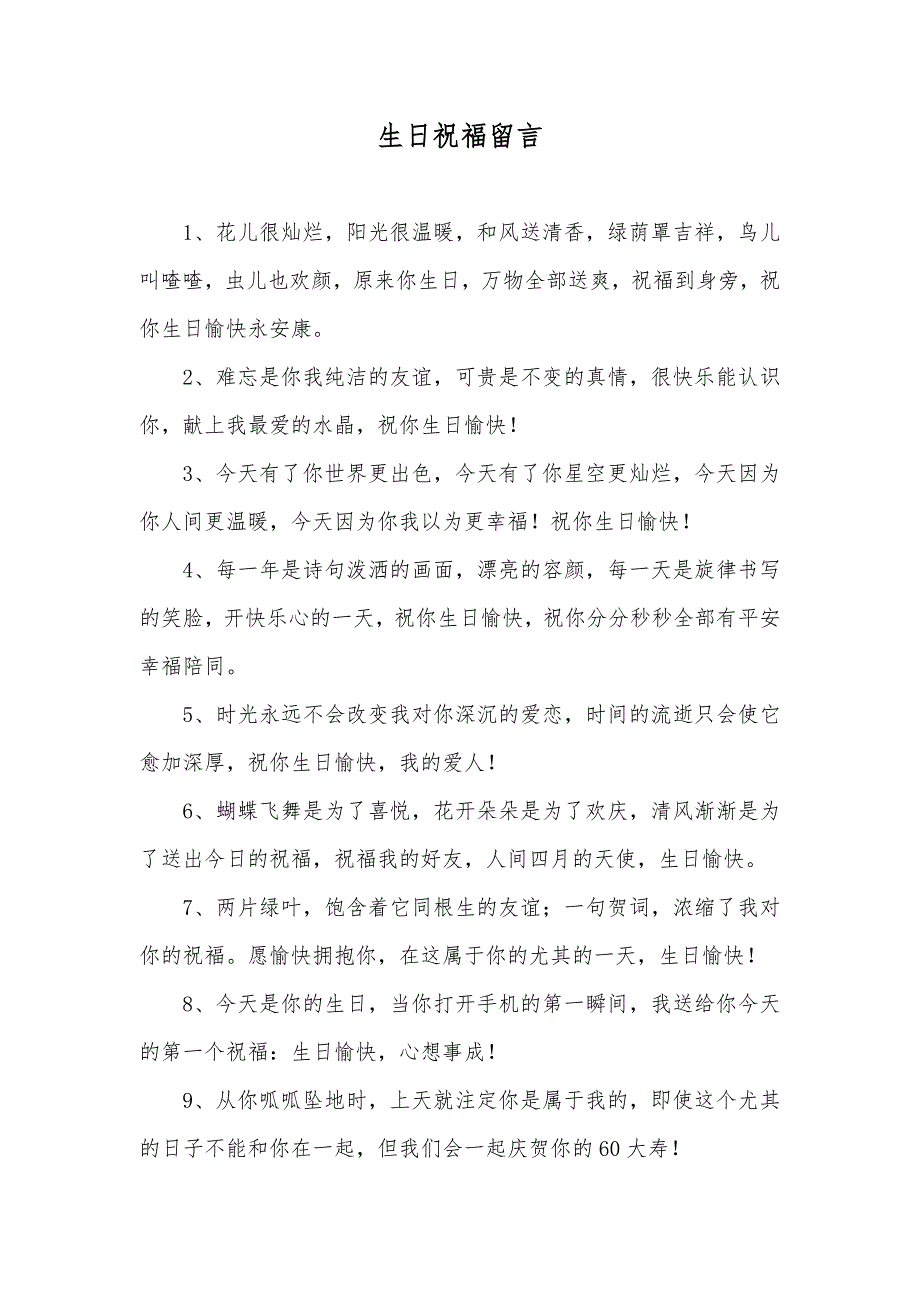 生日祝福留言
1、花儿很灿烂，阳光很温暖，和风送清香，绿荫罩吉祥，鸟儿
叫喳喳，虫儿也欢颜，原来你生日，万物全部送爽，祝福到身旁，祝
你生日愉快永安康。
2、难忘是你我纯洁的友谊，可贵是不变的真情，很快乐能认识
你，献上我最爱的水晶，祝你生日愉快！
3、今天有了你世界更出色，今天有了你星空更灿烂，今天因为
你人间更温暖，今天因为你我以为更幸福！祝你生日愉快！
4、每一年是诗句泼洒的画面，漂亮的容颜，每一天是旋律书写
的笑脸，开快乐心的一天，祝你生日愉快，祝你分分秒秒全部有平安
幸福陪同。
5、时光永远不会改变我对你深沉的爱恋，时间的流逝只会使它
愈加深厚，祝你生日愉快，我的爱人！
6、蝴蝶飞舞是为了喜悦，花开朵朵是为了欢庆，清风渐渐是为
了送出今日的祝福，祝福我的好友，人间四月的天使，生日愉快。
7、两片绿叶，饱含着它同根生的友谊；一句贺词，浓缩了我对
你的祝福。愿愉快拥抱你，在这属于你的尤其的一天，生日愉快！
8、今天是你的生日，当你打开手机的第一瞬间，我送给你今天
的第一个祝福：生日愉快，心想事成！
9、从你呱呱坠地时，上天就注定你是属于我的，即使这个尤其
的日子不能和你在一起，但我们会一起庆贺你的 60 大寿！